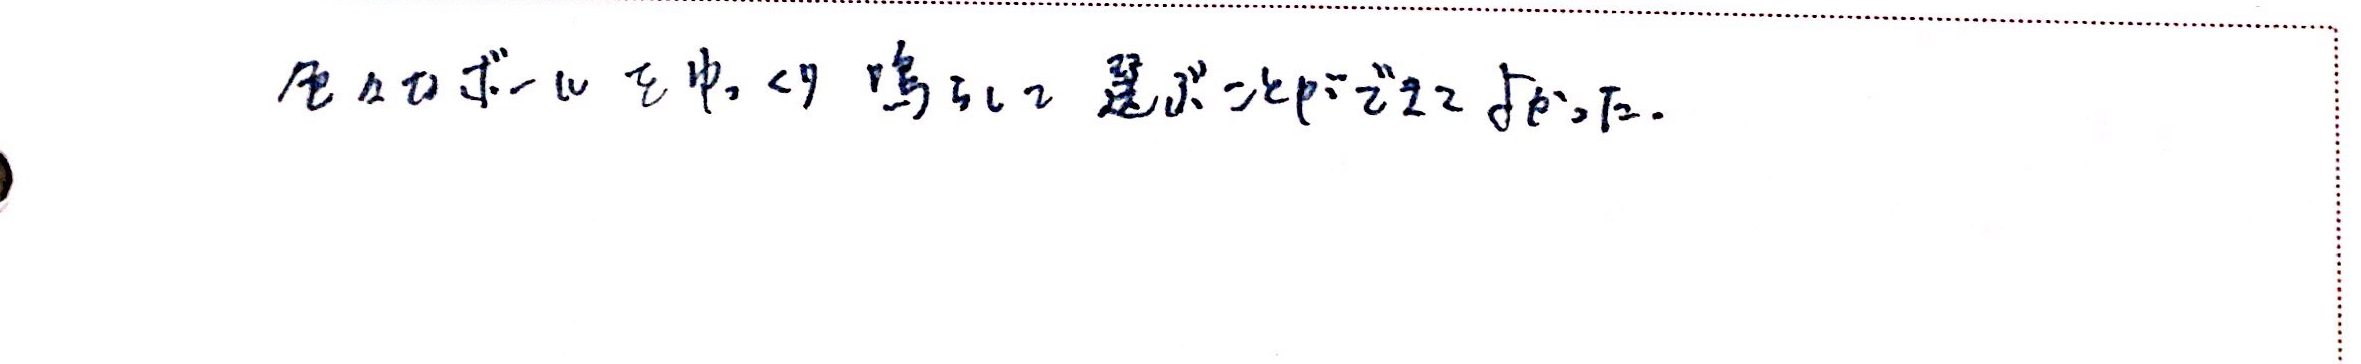 色々なボールをゆっくり鳴らして選ぶことができてよかった.